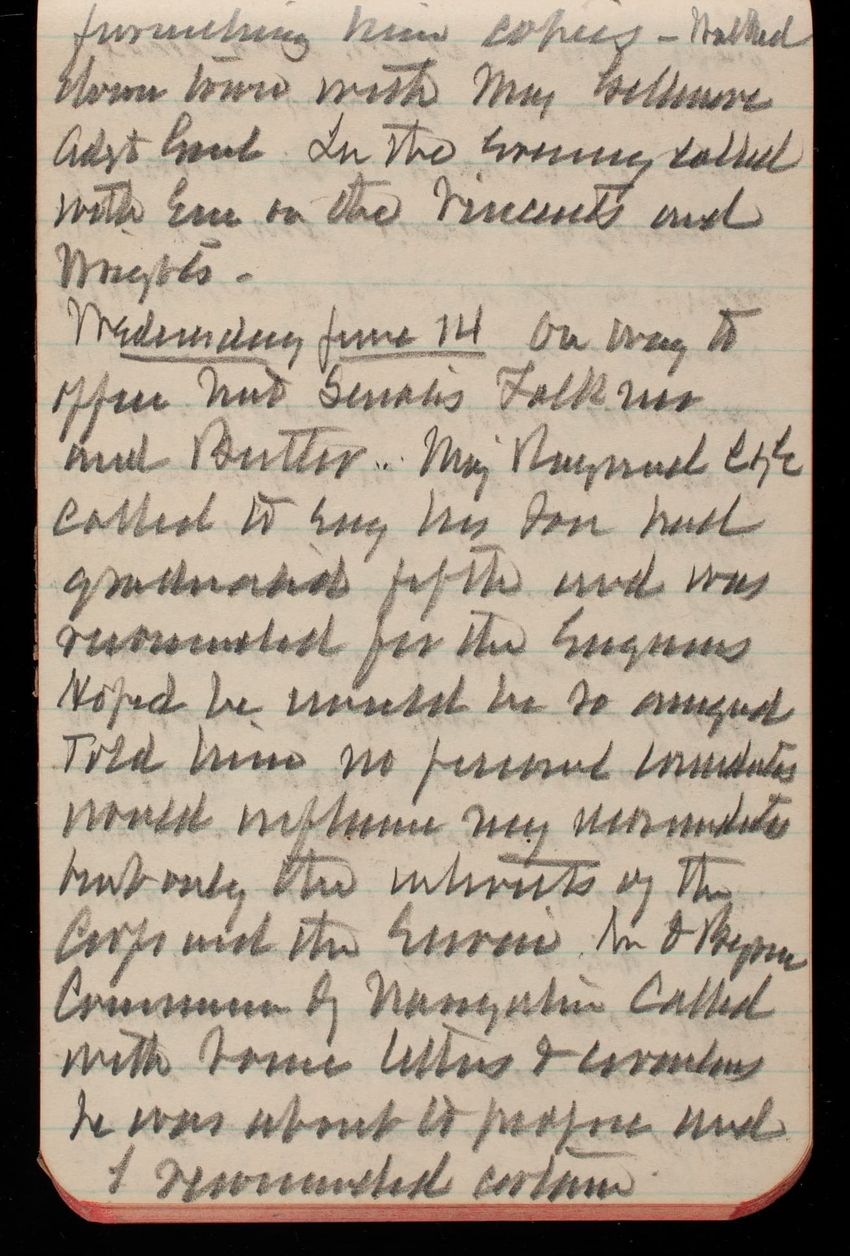 furnishing him copies - Walked
down town with Maj Gillmore
Adjt Genl. In the Evening called
with Em on the Vincents and
Wrights -
Wednesday June 14 On way to
office met Senators Faulkner
and Butler .. Maj Raymond
called to say his son had
graduated fifth and was
recommended for the Engineers
Hoped he would be so assigned
Told him no personal considerations
would influence my recommendation
but only the interests of the
Corps and the Service.
Commissioner of Navigation Called
with some letters & circulars
he was about to propose and
I recommended certain